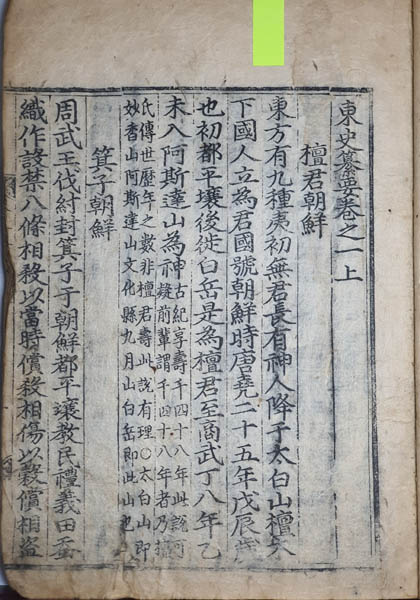 東史纂要卷之一上
檀君朝鮮
東方有九種夷初無君長有神人降于太白山檀木
下國人立為君國號朝鮮時唐堯二十五年戊辰歲
也初都平壤後徙白岳是為檀君至商武丁八年乙
未入阿斯達山為神古紀享壽千四十八年此說可
疑前輩謂千四十八年者乃檀
氏傳世歷年之數非檀君壽此說有理○太白山即
妙香山阿斯達山文化縣九月山白岳即此山也
箕子朝鮮
周武王伐紂封箕子于朝鮮都平壤教民禮義田蚕
織作設禁八條相殺以當時償殺相傷以穀償相盜